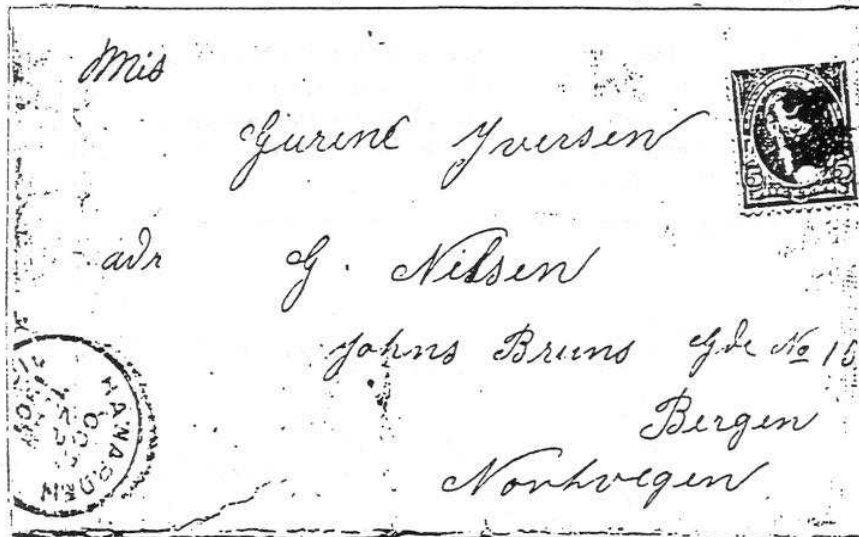 Mis
Gurine Yversen
adr G. Nilsen
Johns Bruns Gde No 15
Bergen
Norhvegen
5 5
HAWARDEN